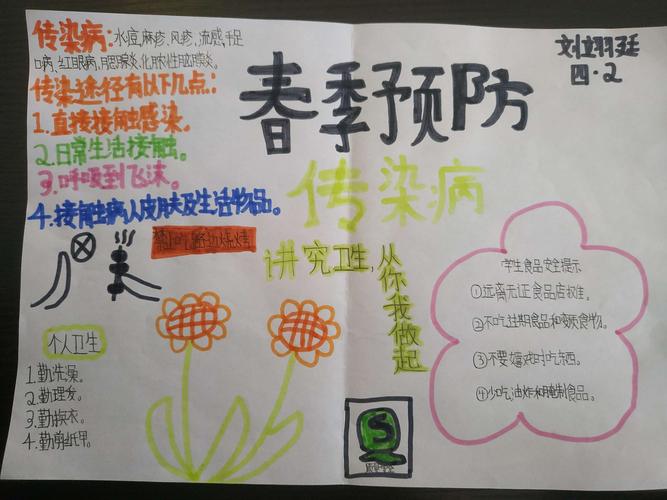 传染病:水痘,麻疹,风疹,流感,手足
口病,红眼病,腮腺炎,化脓性脑膜炎。
传染途径有以下几点:
1.直接接触感染。
2.日常生活接触。
3.呼吸到飞沫。
4.接触病人皮肤及生活物品。
禁止吃路边烧烤
春季预防
传染病
刘翊廷
四·2
讲究卫生,从你我做起
个人卫生
1.勤洗澡。
2.勤理发。
3.勤换衣。
4.勤剪纸甲。
学生食品安全提示
①远离无证食品店摊。
②不吃过期食品和变质食物。
③不要嬉戏时吃东西。
④少吃油炸和腌制食品。
S